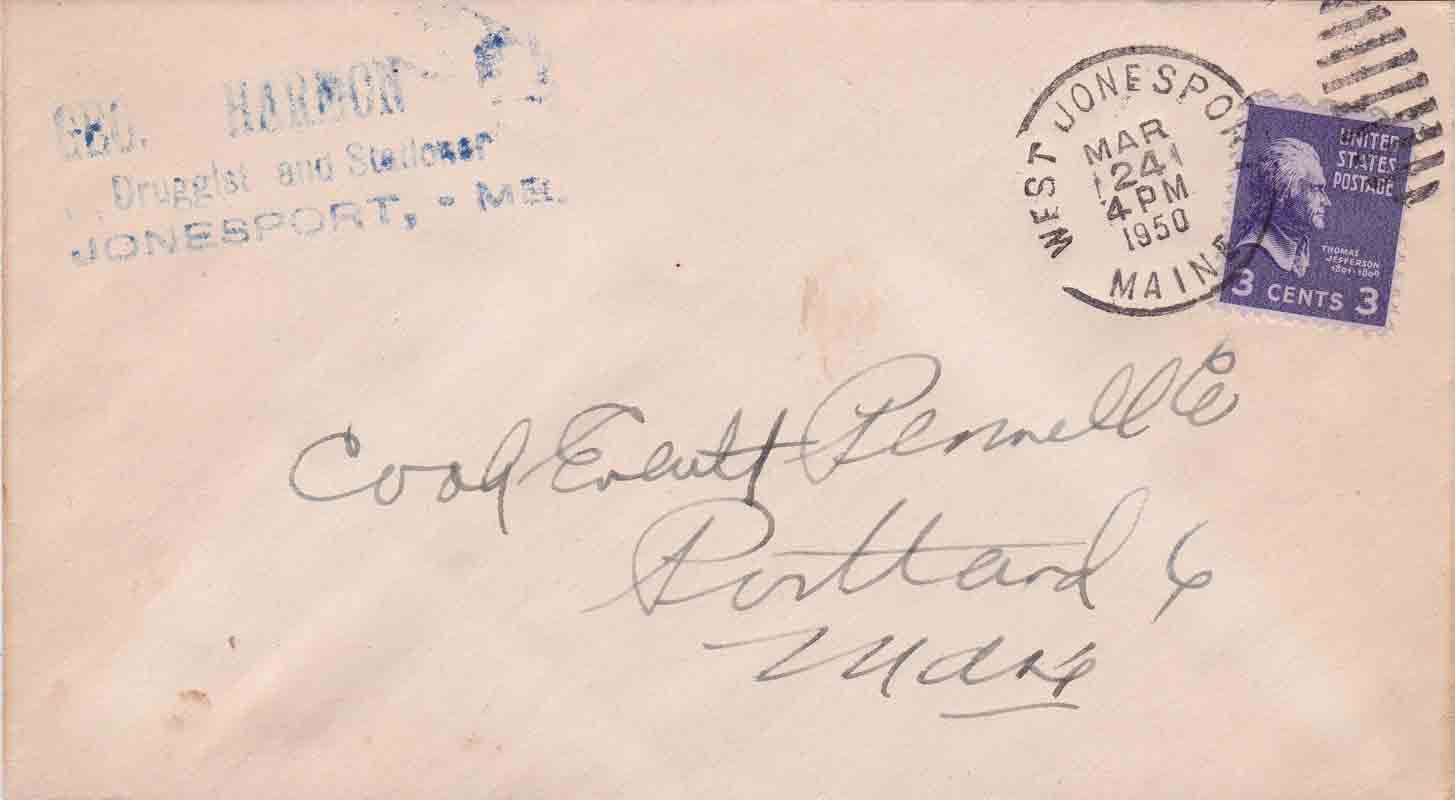 GEO. HARMON
Druggist and Stationer
JONESPORT, - ME.
WEST JONESPORT
MAR
24
4 PM
1950
MAINE
UNITED
STATES
POSTAGE
THOMAS
JEFFERSON
1801-1809
3 CENTS 3
Everett Pennell Co
Portland 6
Maine